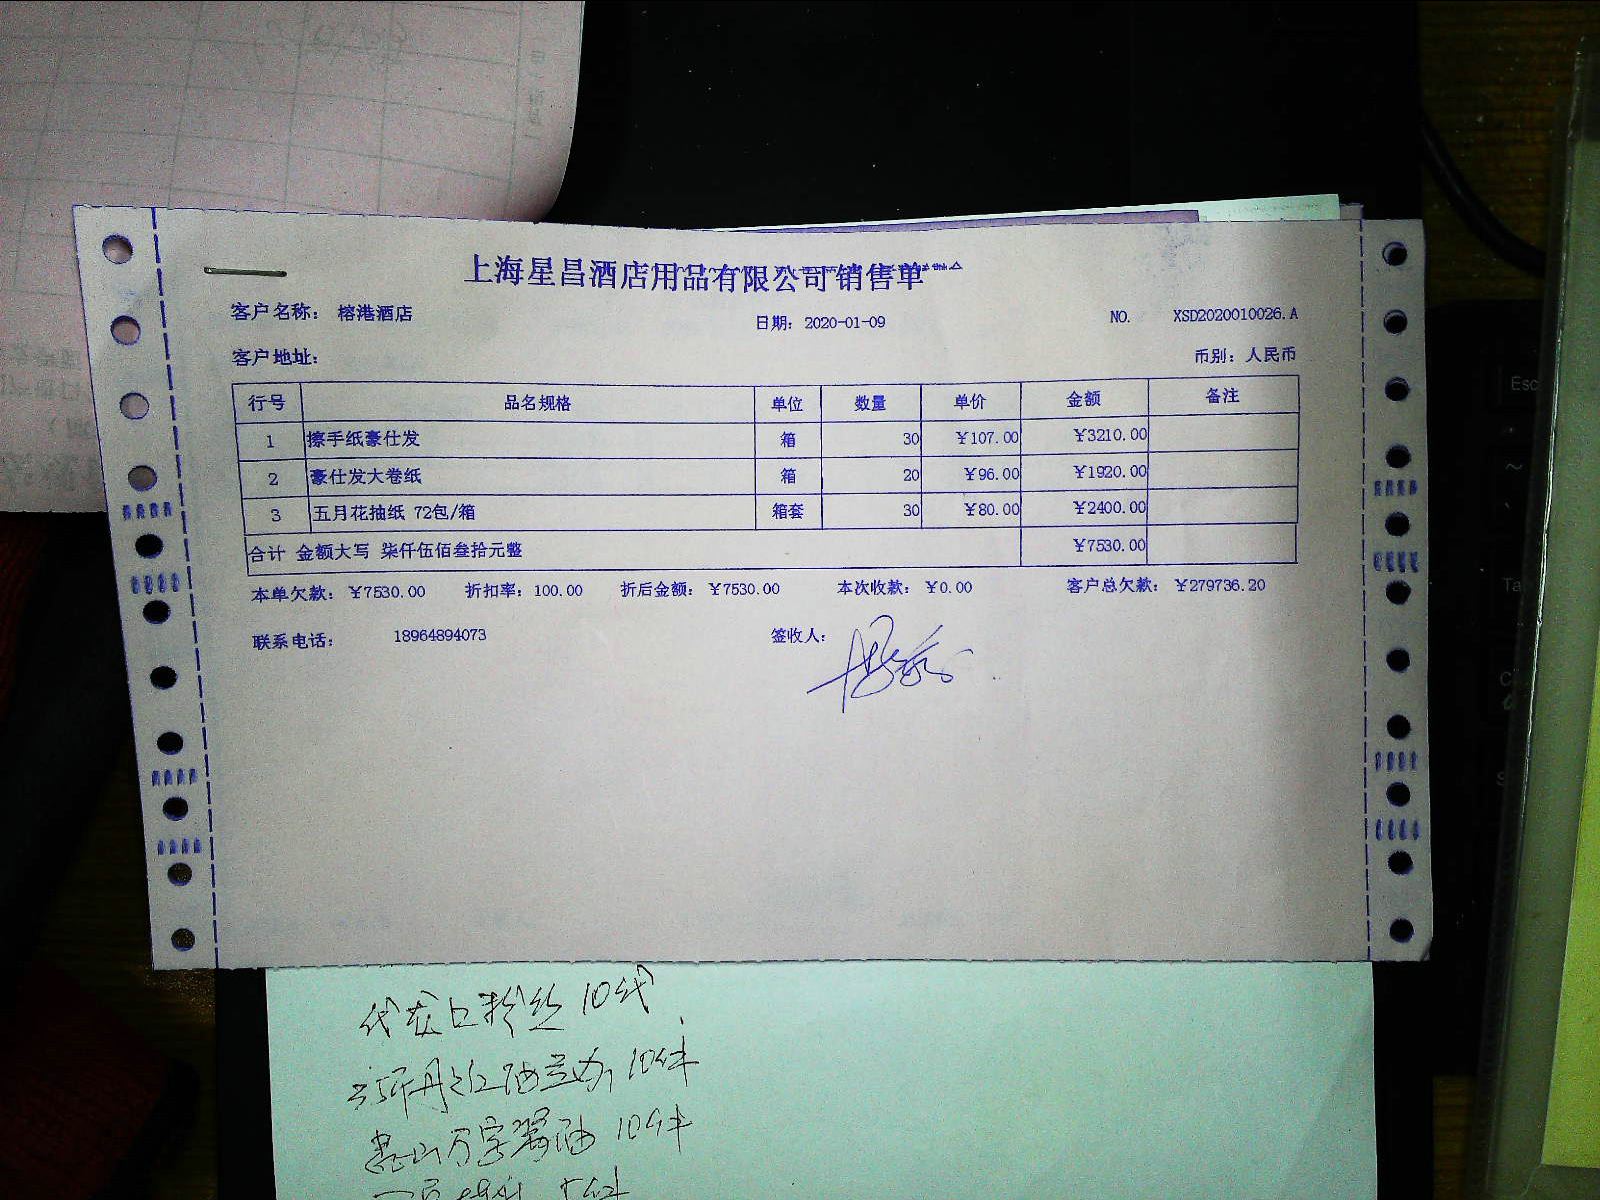 上海星昌酒店用品有限公司销售单
客户名称： 榕港酒店 日期：2020-01-09 NO. XSD2020010026.A
客户地址： 币别：人民币
行号 品名规格 单位 数量 单价 金额 备注
1 擦手纸豪仕发 箱 30 ￥107.00 ￥3210.00
2 豪仕发大卷纸 箱 20 ￥96.00 ￥1920.00
3 五月花抽纸 72包/箱 箱套 30 ￥80.00 ￥2400.00
合计 金额大写 柒仟伍佰叁拾元整 ￥7530.00
本单欠款：￥7530.00 折扣率：100.00 折后金额：￥7530.00 本次收款：￥0.00 客户总欠款：￥279736.20
联系电话： 18964894073 签收人：
龙口粉丝 10
10件
万字酱油 10件
Esc